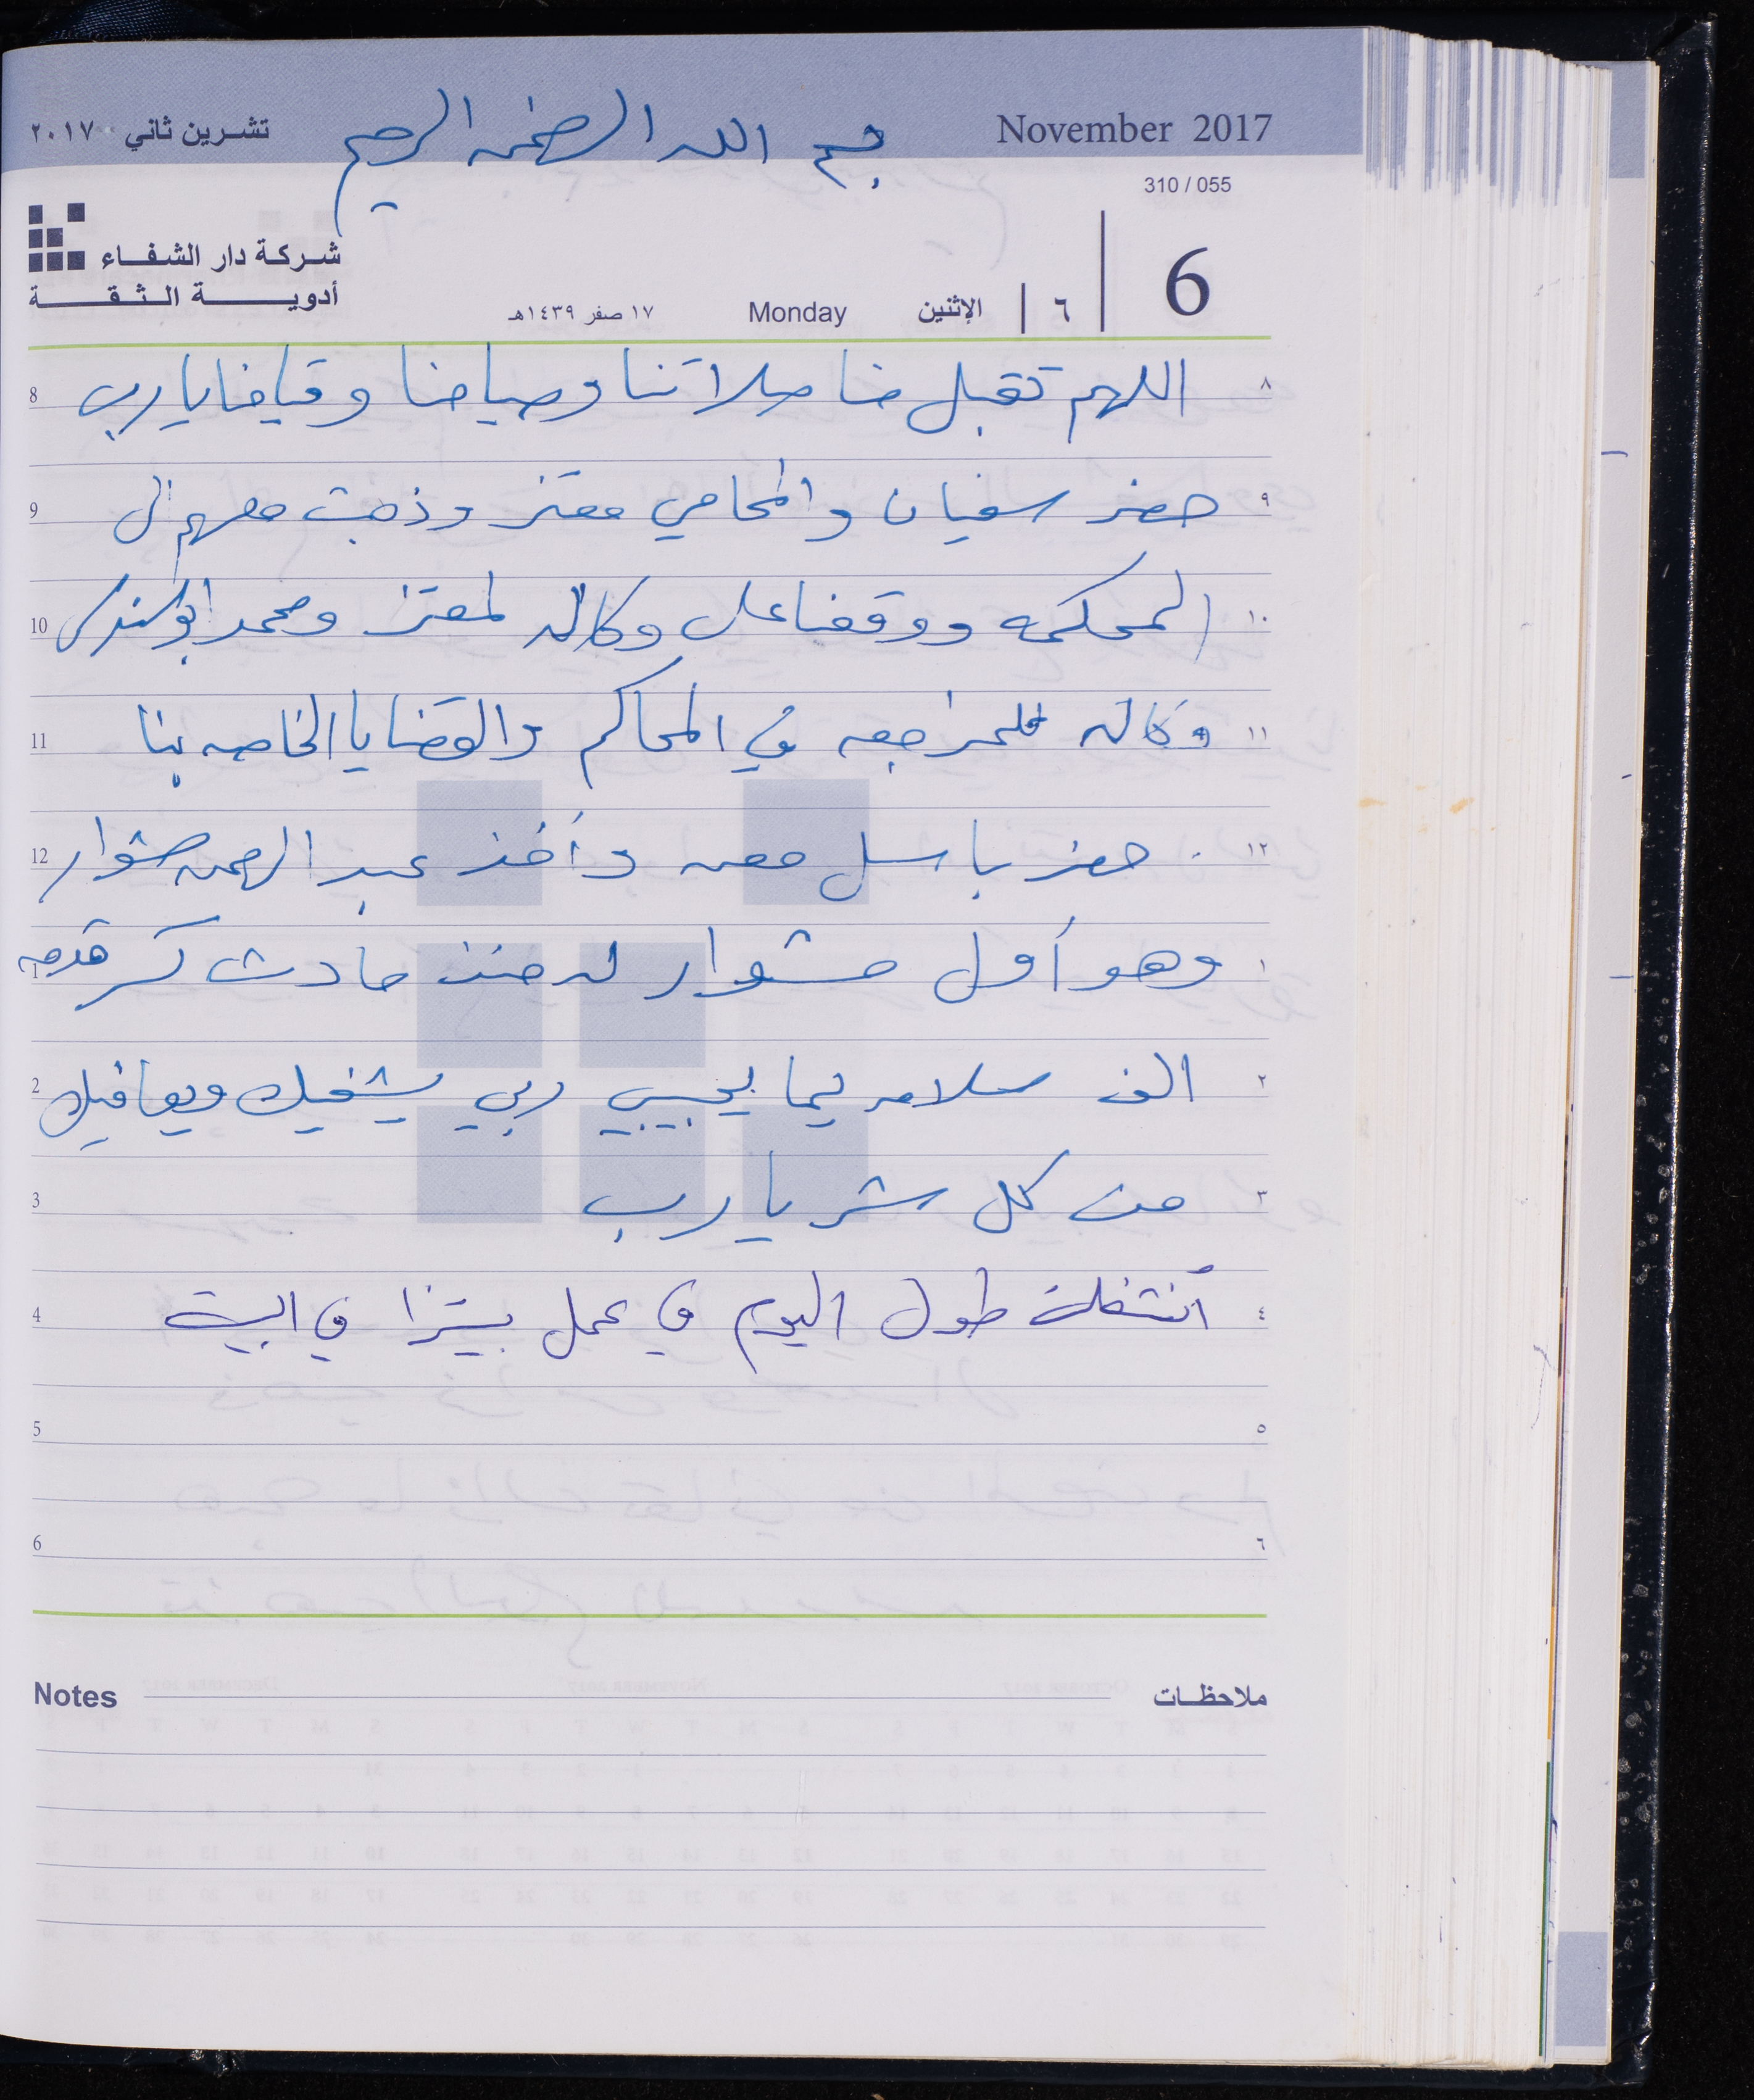 November 2017
بسم الله الرحمن الرحيم
تشرين ثاني ٢٠١٧
310 / 055
شركة دار الشفاء
أدوية الثقة
6 | ٦ | الإثنين Monday ١٧ صفر ١٤٣٩هـ
٨ اللهم تقبل منا صلاتنا وصيامنا وقيامنا يا رب 8
٩ حضر سفيان والمحامي معتز وذهبت معهم الى 9
١٠ المحكمه ووقعنا على وكاله لمعتز ومحمد ابو 10
١١ وكاله للمراجعه في المحاكم والقضايا الخاصه بنا 11
١٢ حضر باسل معه وأخذ عبد الرحمن مشوار 12
١ وهو أول مشوار له منذ حادث كسر قدمه 1
٢ الف سلامه يما يحبيبي ربي يشفيك ويعافيك 2
٣ من كل شر يا رب 3
٤ أنشغلت طول اليوم في عمل بيتزا في البيت 4
٥ 5
٦ 6
ملاحظات Notes